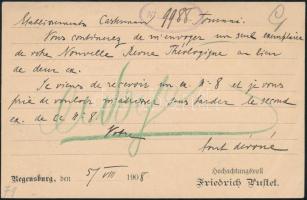 Etablissements Casterman 9988 Tournai.
Vous continuerez de m'envoyer un seul exemplaire
de votre Nouvelle Revue Théologique au lieu
de deux ex.
Je viens de recevoir un ex. № 8 et je vous
prie de vouloir m'adresser sans tarder le second
ex. de ce № 8.
Votre
tout dévoué
Hochachtungsvoll
Regensburg, den 5/VIII 1908 Friedrich Pustet.